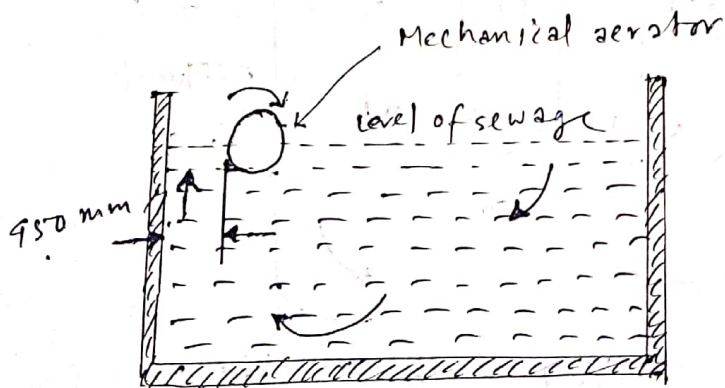 Mechanical aerator
level of sewage
450 mm